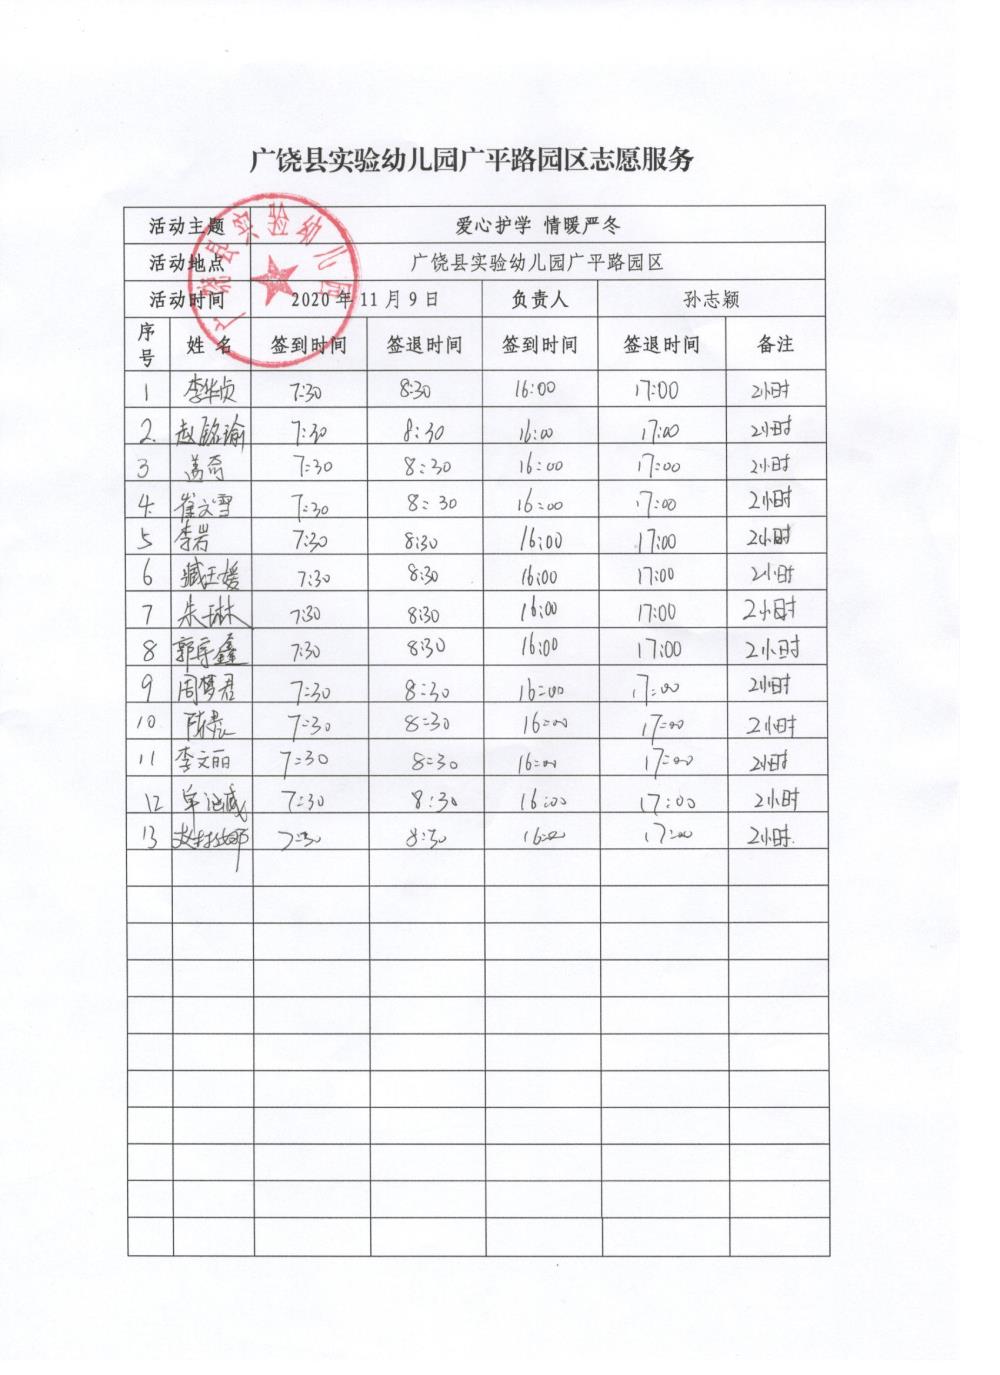 广饶县实验幼儿园广平路园区志愿服务
活动主题 爱心护学 情暖严冬
活动地点 广饶县实验幼儿园广平路园区
活动时间 2020年11月9日 负责人 孙志颖
序号 姓名 签到时间 签退时间 签到时间 签退时间 备注
广饶县实验幼儿园
1 李华贞 7:30 8:30 16:00 17:00 2小时
2. 赵铭瑜 7:30 8:30 16:00 17:00 2小时
3 盖奇 7:30 8:30 16:00 17:00 2小时
4. 崔文雪 7:30 8:30 16:00 17:00 2小时
5 李岩 7:30 8:30 16:00 17:00 2小时
6 臧玉媛 7:30 8:30 16:00 17:00 2小时
7 朱琳 7:30 8:30 16:00 17:00 2小时
8 郭宗鑫 7:30 8:30 16:00 17:00 2小时
9 周梦君 7:30 8:30 16:00 17:00 2小时
10 7:30 8:30 16:00 17:00 2小时
11 李文丽 7:30 8:30 16:00 17:00 2小时
12 7:30 8:30 16:00 17:00 2小时
13 7:30 8:30 16:00 17:00 2小时.